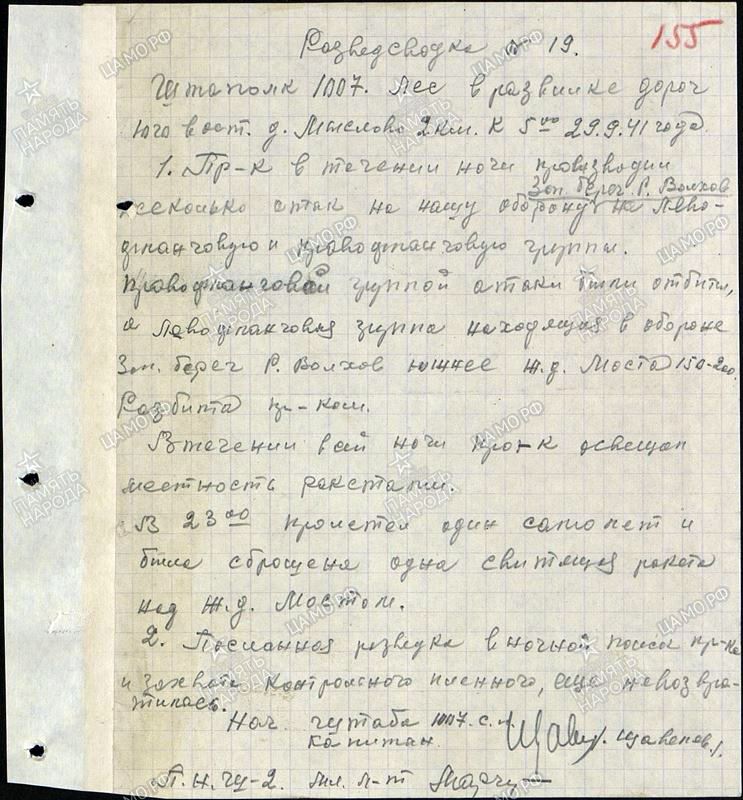 155
Разведсводка № 19.
Штаполк 1007. Лес в развилке дорог
юго вост. д. Мыслово 2 км. К 5 00 29.9.41 года.
1. Пр-к в течении ночи производил
Зап. берег Р. Волхов
несколько атак на нашу оборону на лево-
фланговую и правофланговую группы.
Правофланговой группой атаки были отбиты,
а левофланговая группа находящая в обороне
Зап. берег Р. Волхов южнее ж.д. Моста 150-200
Разбита пр-ком.
В течении всей ночи про-к освещал
местность ракетами.
В 23 00 пролетел один самолет и
была сброшена одна свитящая ракета
над ж.д. Мостом.
2. Посланная разведка в ночной поиск пр-ка
и захвата контрольного пленного, еще невозвра-
тилась.
Нач. штаба 1007 с.п.
капитан Щавелев
П.н.ш-2. мл. л-т